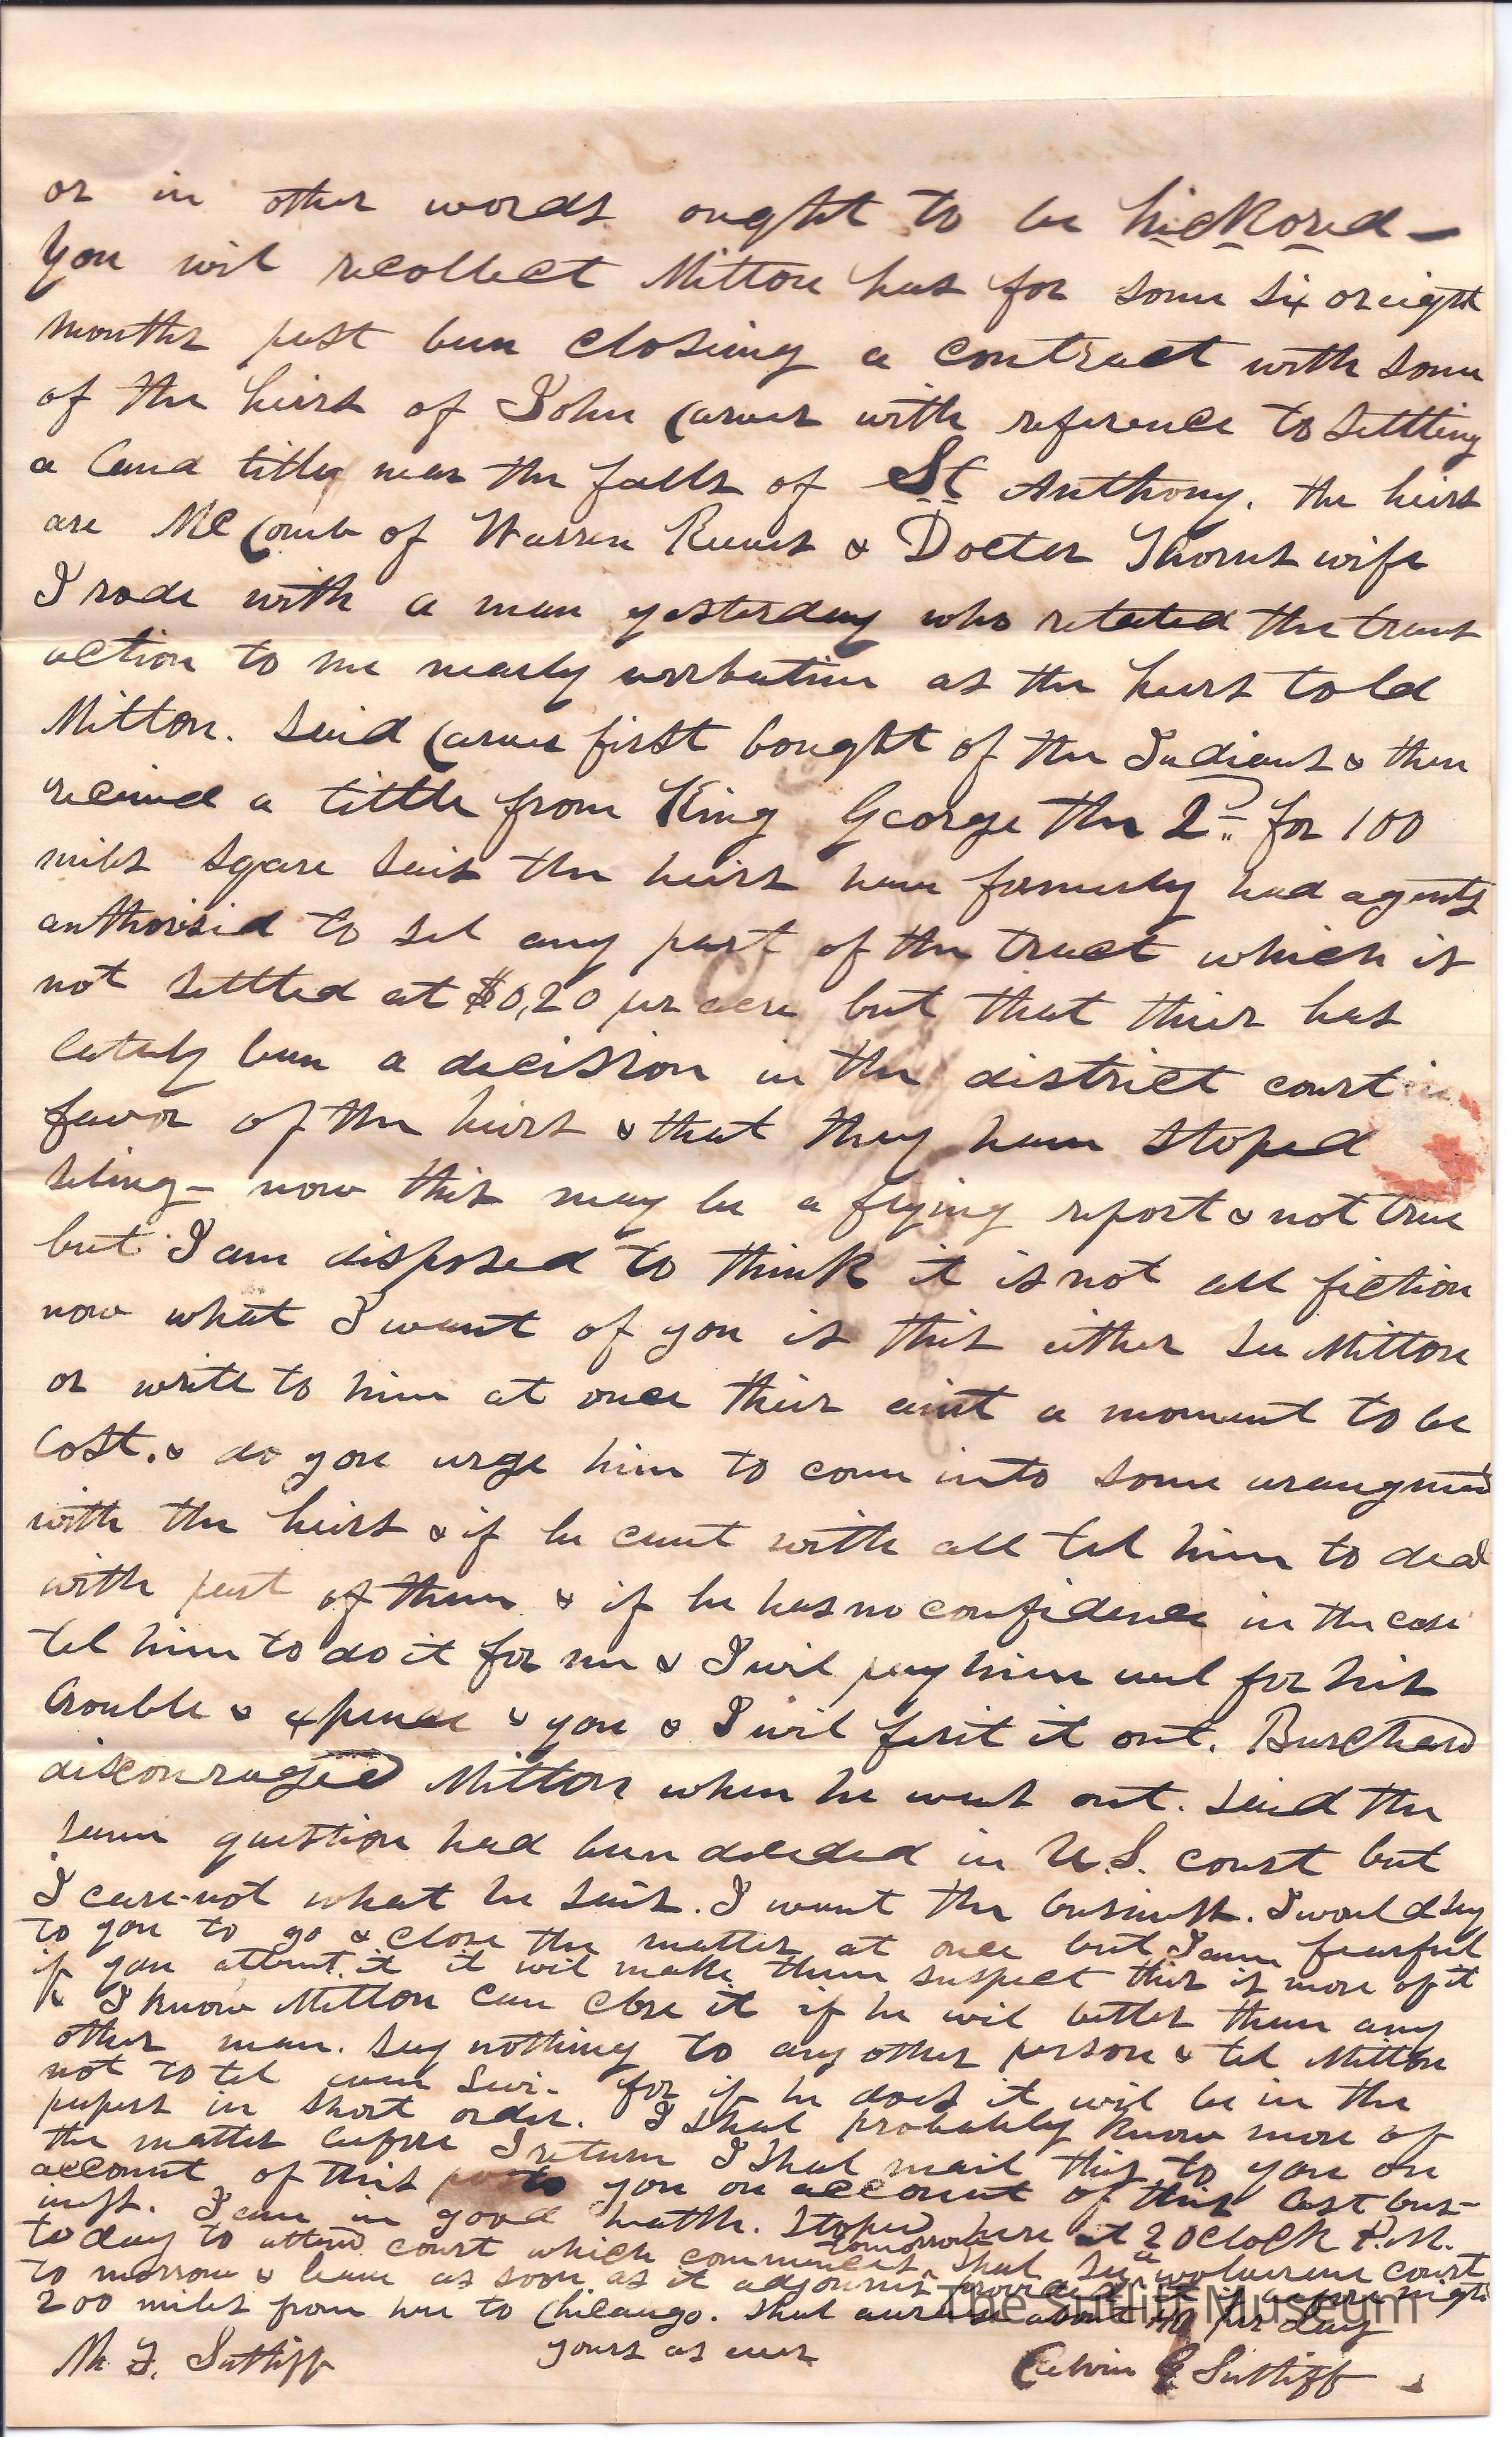 or in other words ought to be hickored –
You wil recollect Milton has for some six or eight
months past been closeing a contract with some
of the heirs of John Carver with reference to settling
a land title near the falls of St Anthony. the heirs
are McComb of Warren Reeves & Docter Thorns wife
I rode with a man yesterday who related the trans
action to me nearly verbatim as the heirs told
Milton. Said Carver first bought of the Indians & then
recived a tittle from King George the 2d for 100
miles sqare sais the heirs have formerly had agents
authorisid to sel any part of the tract which is
not settled at $0,20 per acre but that thier has
lately been a decission in the district court in
favor of the heirs & that they have stoped
seling – now this may be a flying report & not true
but I am disposed to think it is not all fiction
now what I want of you is this either see Milton
or write to him at once thier aint a moment to be
lost. & do you urge him to come into some arangment
with the heirs & if he cant with all tel him to deal
with part of them & if he has no confidence in the case
tel him to do it for me & I wil pay him wel for his
trouble & expence & you & I wil ferit it out. Burchard
discouraged Milton when he was out. Said the
same question had been decided in U.S. court but
I care not what he sais. I want the business. I would say
to you to go & close the matter at once but I am fearful
if you attemt it it wil make them suspect thier is more of it
& I know Milton can close it if he wil better than any
other man. say nothing to any other person & tel Milton
not to tel even Levi – for if he does it wil be in the
papers in short order. I shal probably know more of
the matter before I return I shal mail this to you on
account of this to you on account of this last bus-
iness. I am in good health. Stoped here at 2 oclock P.M.
today to attend court which commences tomorrow shal see a wolverene court
to morrow & leave as soon as it adjourns provided it is before night
200 miles from here to Chicaugo. shal average about 40 per day
yours as ever
M F. Sutliff Calvin G Sutliff
The Sutliff Museum